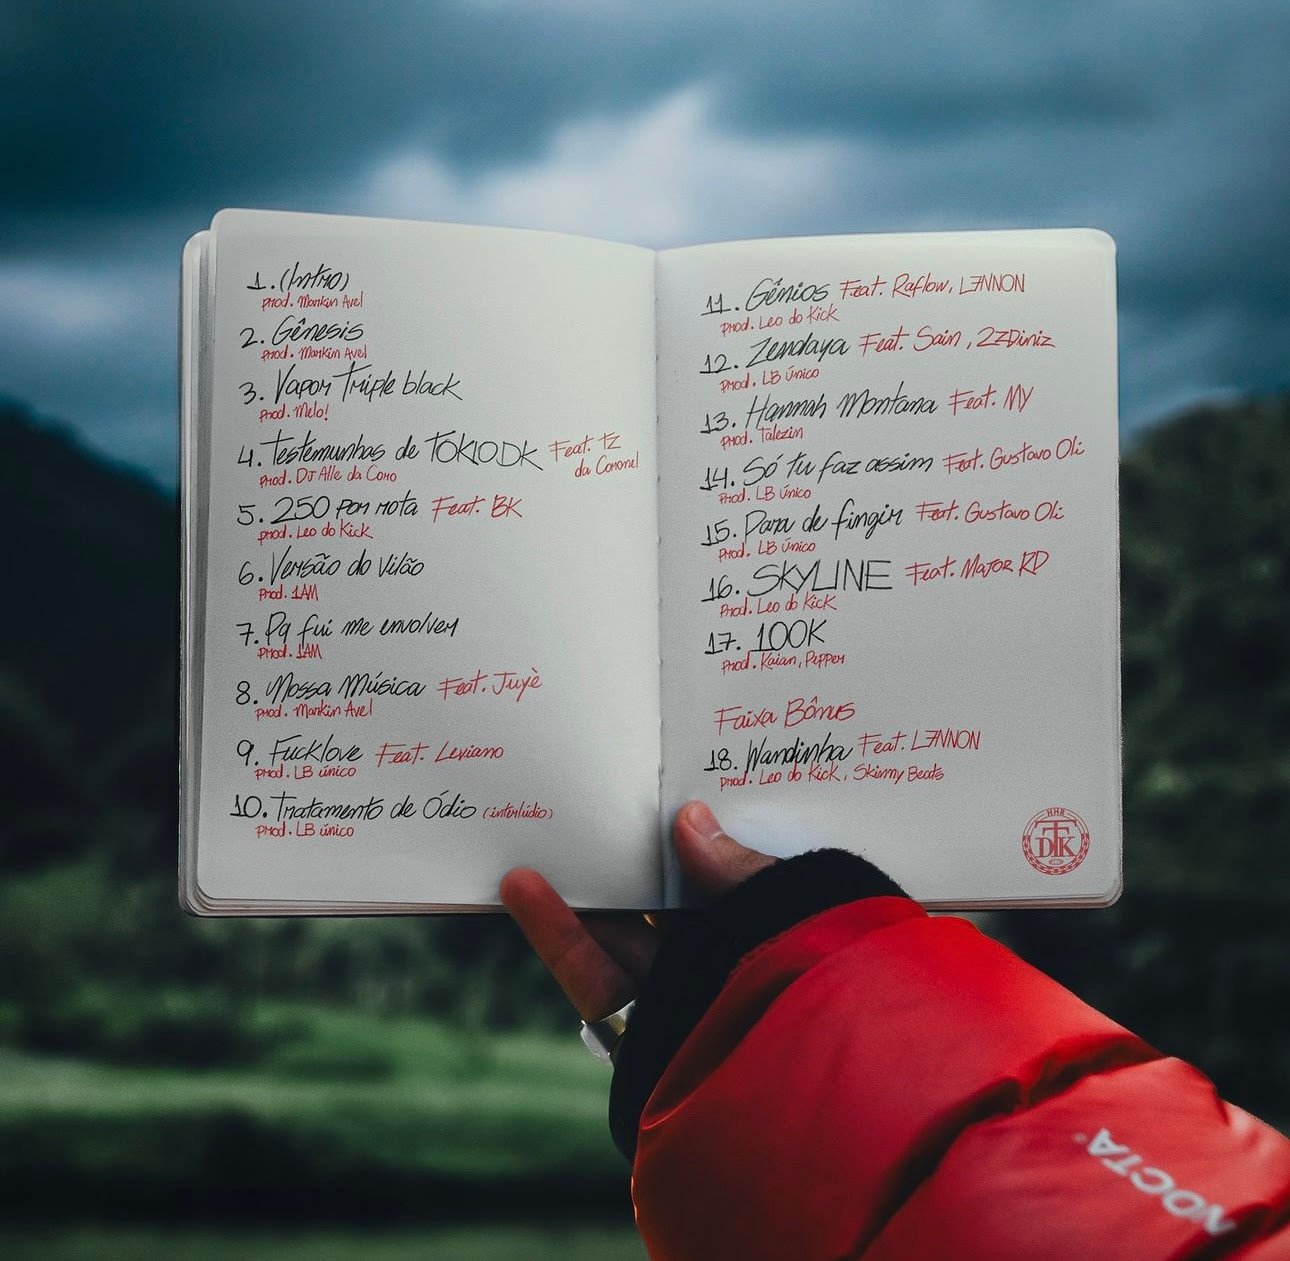 1. (Intro)
Prod. Markin Avel
2. Gênesis
Prod. Markin Avel
3. Vapor Triple black
Prod. Melo!
4. Testemunhas de TOKIODK Feat. TZ
da Coronel
Prod. DJ Alle da Coro
5. 250 por nota Feat. BK
Prod. Leo do Kick
6. Versão do Vilão
Prod. 1AM
7. Pq fui me envolver
Prod. 1AM
8. Nossa Música Feat. Juyè
Prod. Markin Avel
9. Fucklove Feat. Leviano
Prod. LB único
10. Tratamento de Ódio (interlúdio)
Prod. LB único
11. Gênios Feat. Raflow, L7NNON
Prod. Leo do Kick
12. Zendaya Feat. Sain, 2ZDiniz
Prod. LB único
13. Hannah Montana Feat. MY
Prod. Talezin
14. Só tu faz assim Feat. Gustavo Oli
Prod. LB único
15. Para de fingir Feat. Gustavo Oli
Prod. LB único
16. SKYLINE Feat. Major RD
Prod. Leo do Kick
17. 100K
Prod. Kaian, Pepper
Faixa Bônus
18. Wandinha Feat. L7NNON
Prod. Leo do Kick, Skinny Beats
TDK
NOCTA